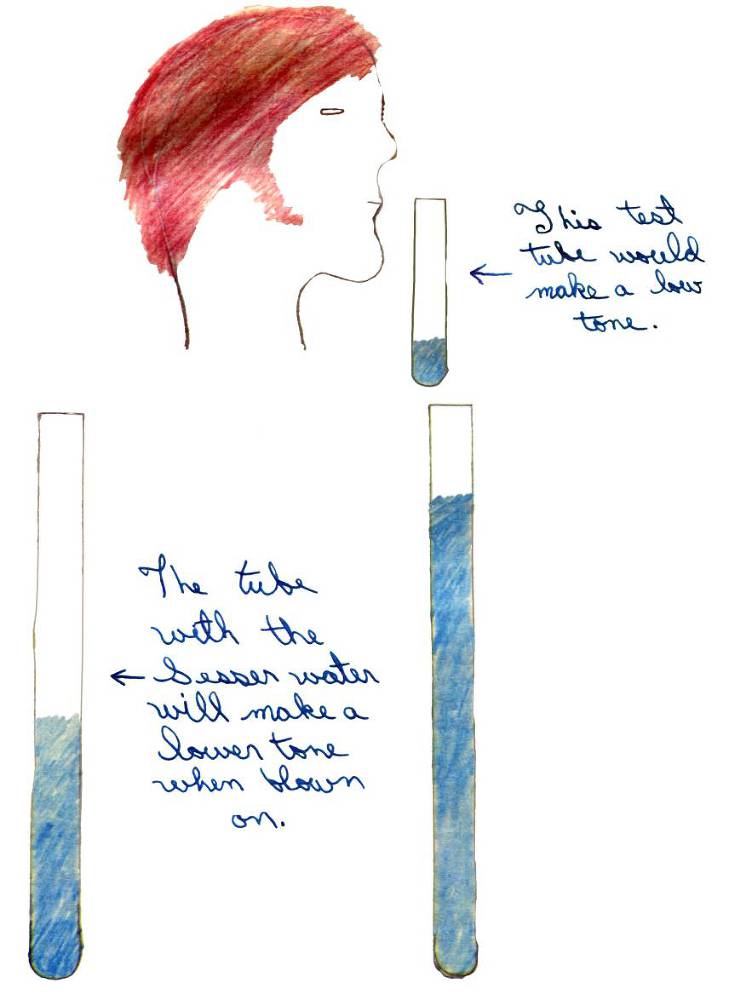 This test
tube would
make a low
tone.
The tube
with the
lesser water
will make a
lower tone
when blown
on.